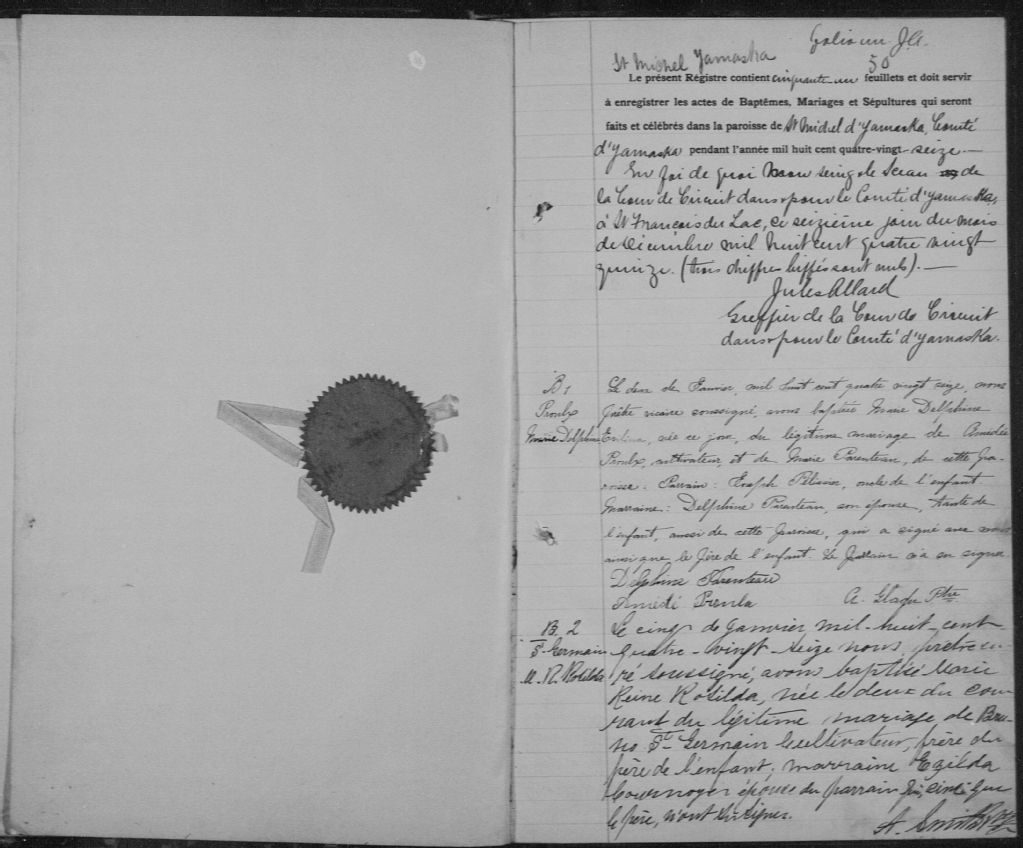 folio un J.A.
St Michel Yamaska
50
Le présent Régistre contient cinquante-un feuillets et doit servir
à enregistrer les actes de Baptêmes, Mariages et Sépultures qui seront
faits et célébrés dans la paroisse de St Michel d'Yamaska, Comté
d'Yamaska pendant l'année mil huit cent quatre-vingt-seize.—
En foi de quoi mon seing & le Sceau de
la Cour de Circuit dans & pour le Comté d'Yamaska,
à St François du Lac, ce seizième jour du mois
de Décembre mil huit cent quatre vingt
quinze. (trois chiffres biffés sont nuls).—
Jules Allard
Greffier de la Cour de Circuit
dans & pour le Comté d'Yamaska.
B. 1
Proulx
Marie Delphine
Le deux de Janvier, mil huit cent quatre vingt seize, nous
prêtre vicaire soussigné, avons baptisé Marie Delphine
née ce jour, du légitime mariage de Amédée
Proulx, cultivateur, et de Marie Parenteau, de cette pa-
roisse. Parrain: Joseph Pélissier, oncle de l'enfant
Marraine: Delphine Parenteau, son épouse, tante de
l'enfant, aussi de cette paroisse, qui a signé avec nous
ainsi que le père de l'enfant. Le parrain n'a su signer
Delphine Parenteau
Amédé Proulx A. Gladu Ptre
B. 2
St-Germain
M. R. Rosilda
Le cinq de Janvier, mil-huit-cent-
quatre-vingt-seize nous, prêtre cu-
ré soussigné, avons baptisé Marie
Reine Rosilda, née le deux du cou-
rant du légitime mariage de Bru-
no St-Germain cultivateur, frère du
père de l'enfant; marraine Exilda
Cournoyer épouse du parrain qui, ainsi que
le père, n'ont su signer.
A. Smith Ptre